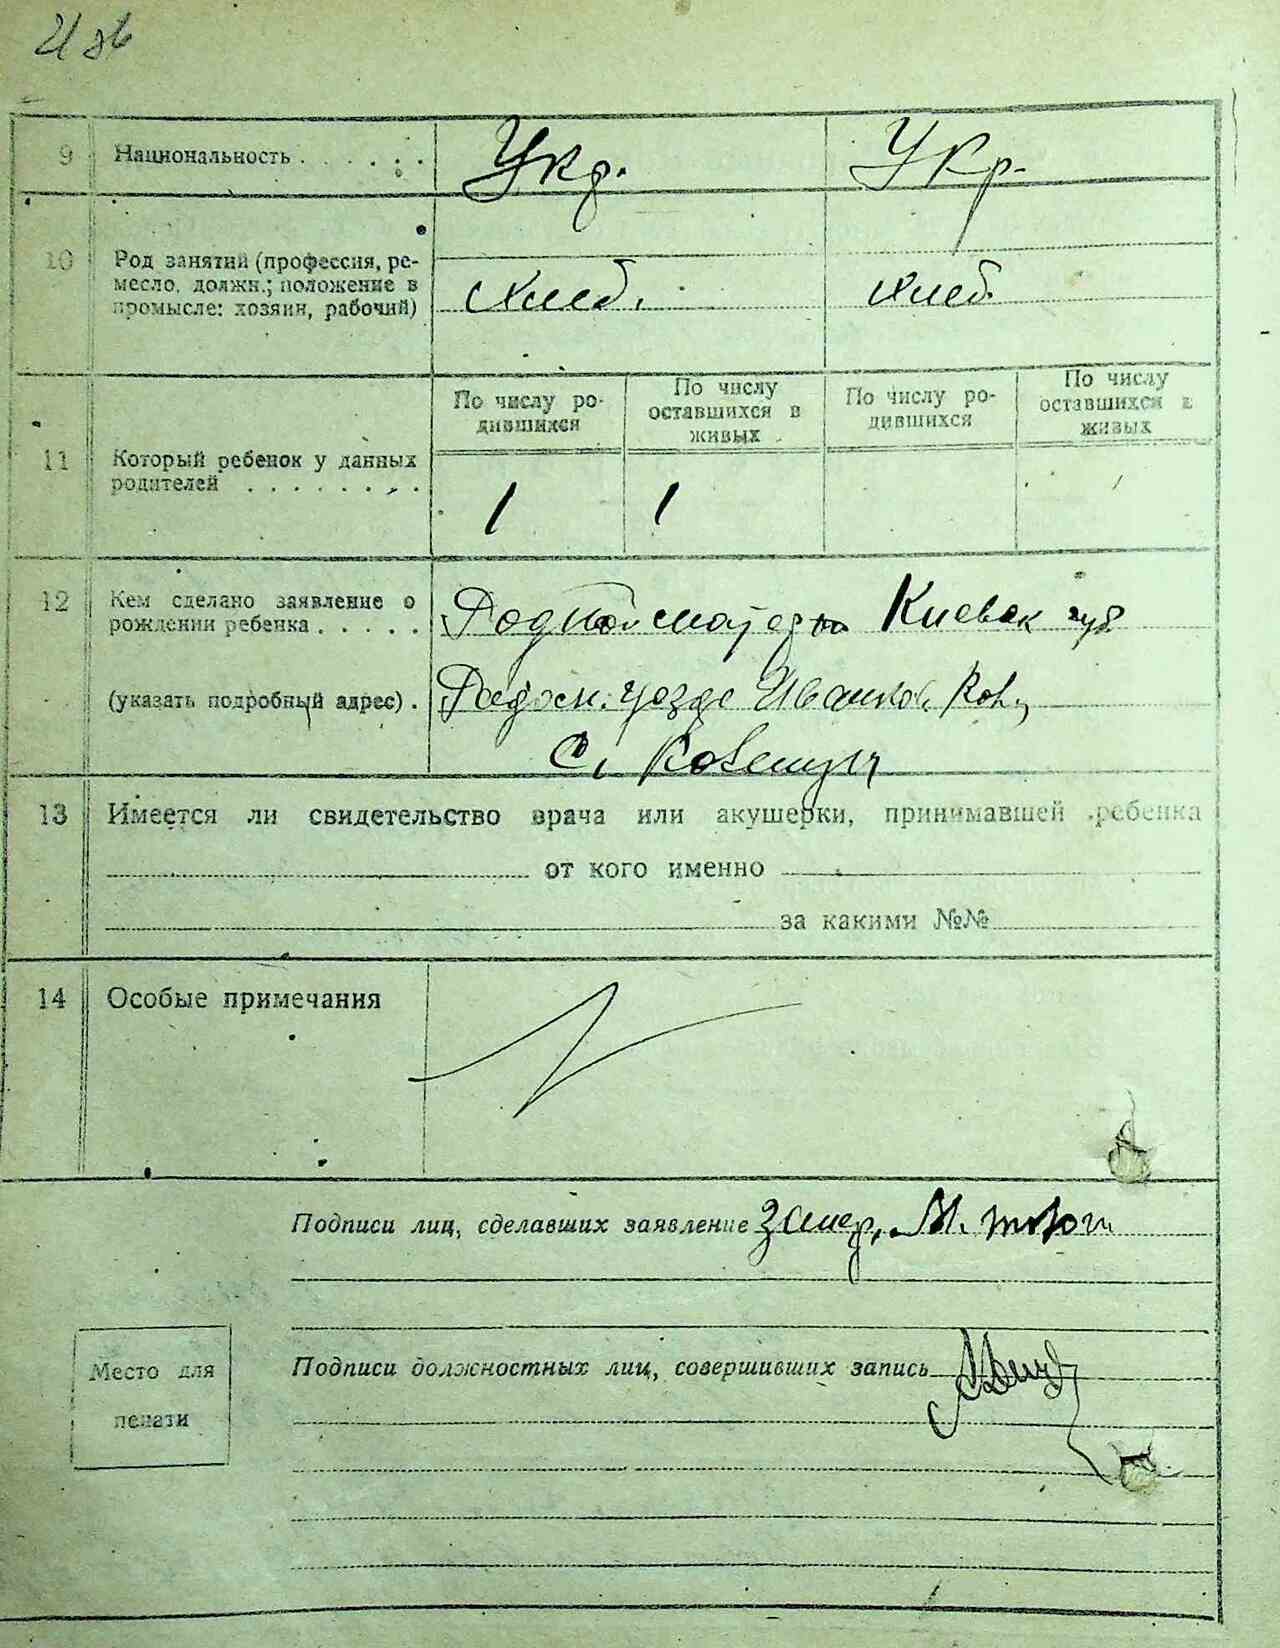 21 зв
9 Национальность . . . . . . Укр. Укр.
10 Род занятий (профессия, ре-
месло, должн.; положение в
промысле: хозяин, рабочий)
хлеб. хлеб.
11 Который ребенок у данных
родителей . . . . . . . .
По числу ро-
дившихся
По числу
оставшихся в
живых
По числу ро-
дившихся
По числу
оставшихся в
живых
1 1
12 Кем сделано заявление о
рождении ребенка . . . . .
Родной матерью Киевск губ
(указать подробный адрес) . Радом. уезда Иванков.
С.
13 Имеется ли свидетельство врача или акушерки, принимавшей ребенка
от кого именно
за какими №№
14 Особые примечания
Подписи лиц, сделавших заявление
Подписи должностных лиц, совершивших запись
Место для
печати